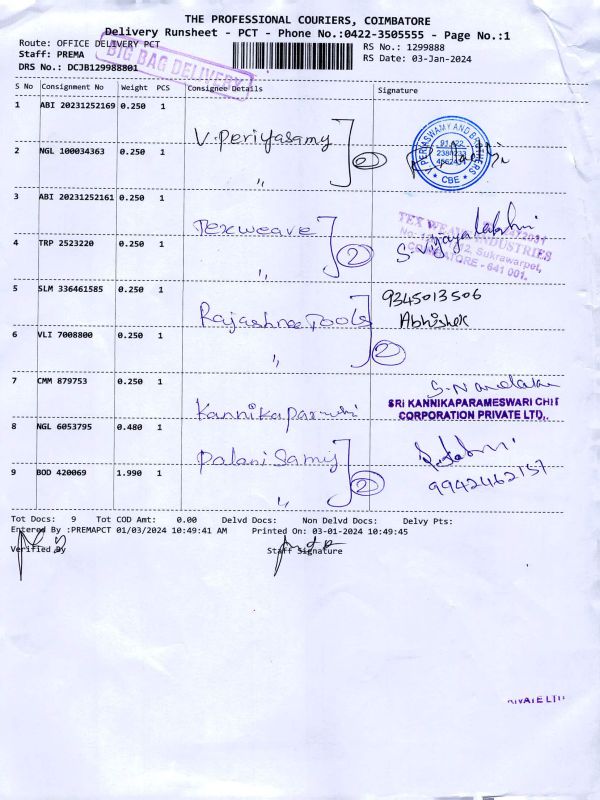 THE PROFESSIONAL COURIERS, COIMBATORE
Delivery Runsheet - PCT - Phone No.:0422-3505555 - Page No.:1
Route: OFFICE DELIVERY PCT
RS No.: 1299888
Staff: PREMA
RS Date: 03-Jan-2024
DRS No.: DCJB129988801
BIG BAG DELIVERY
S No Consignment No Weight PCS Consignee Details Signature
1 ABI 20231252169 0.250 1
V. Periyasamy
2 NGL 100034363 0.250 1
2
V PERIASWAMY AND BROTHERS
CBE
3 ABI 20231252161 0.250 1
Texweave
4 TRP 2523220 0.250 1
2
TEX WEAVE INDUSTRIES
Sukrawarpet,
COIMBATORE - 641 001.
S. Vijayalakshmi
5 SLM 336461585 0.250 1
Rajashree Tools
9345013506
Abhishek
6 VLI 7008800 0.250 1
2
7 CMM 879753 0.250 1
SRI KANNIKAPARAMESWARI CHIT
CORPORATION PRIVATE LTD.,
8 NGL 6053795 0.480 1
Palani Samy
9942462157
9 BOD 420069 1.990 1
2
Tot Docs: 9 Tot COD Amt: 0.00 Delvd Docs: Non Delvd Docs: Delvy Pts:
Entered By :PREMAPCT 01/03/2024 10:49:41 AM Printed On: 03-01-2024 10:49:45
Verified By Staff Signature